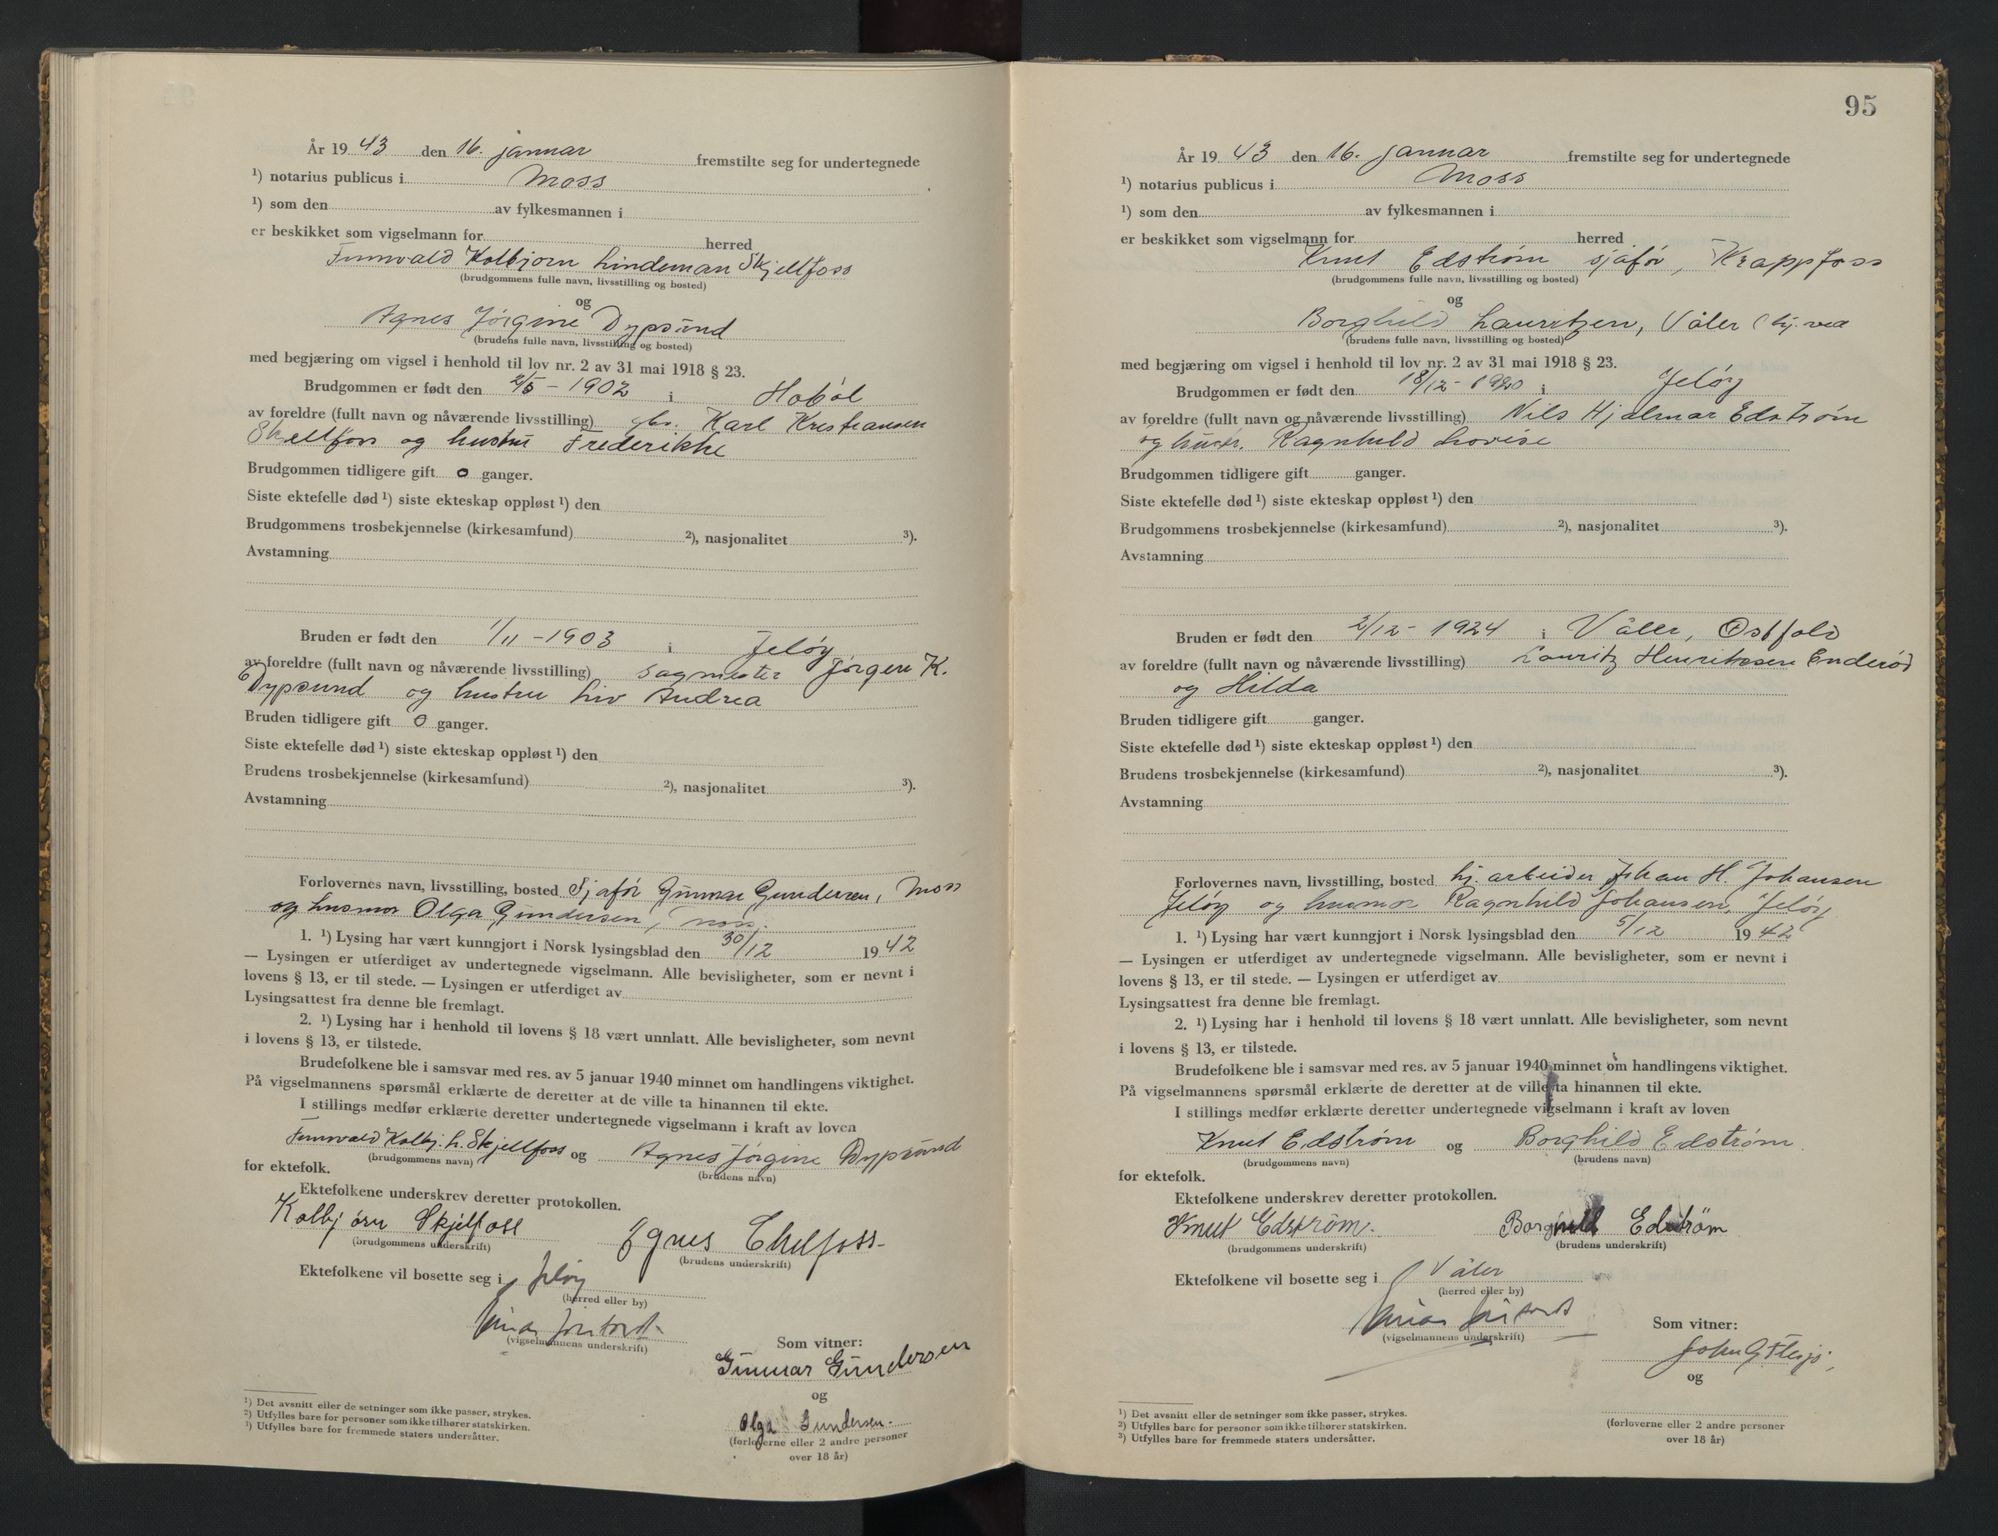 År 1943 den 16. januar fremstilte seg for undertegnede
¹) notarius publicus i Moss
¹) som den av fylkesmannen i
er beskikket som vigselmann for herred
Finnvald Kolbjørn Lindeman Skjellfoss
(brudgommens fulle navn, livsstilling og bosted)
og
Agnes Jørgine Dypsund
(brudens fulle navn, livsstilling og bosted)
med begjæring om vigsel i henhold til lov nr. 2 av 31 mai 1918 § 23.
Brudgommen er født den 2/5 - 1902 i Hobøl
av foreldre (fullt navn og nåværende livsstilling) gbr. Karl Kristiansen
Skjellfoss og hustru Frederikke
Brudgommen tidligere gift 0 ganger.
Siste ektefelle død ¹) siste ekteskap oppløst ¹) den
Brudgommens trosbekjennelse (kirkesamfund) ²), nasjonalitet ³).
Avstamning
Bruden er født den 1/11 - 1903 i Jeløy
av foreldre (fullt navn og nåværende livsstilling) sagmester Jørgen K.
Dypsund og hustru Liv Andrea
Bruden tidligere gift 0 ganger.
Siste ektefelle død ¹) siste ekteskap oppløst ¹) den
Brudens trosbekjennelse (kirkesamfund) ²), nasjonalitet ³).
Avstamning
Forlovernes navn, livsstilling, bosted Sjåfør Gunnar Gundersen, Moss
og husmor Olga Gundersen, Moss.
1. ¹) Lysing har vært kunngjort i Norsk lysingsblad den 30/12 1942
— Lysingen er utferdiget av undertegnede vigselmann. Alle bevisligheter, som er nevnt i
lovens § 13, er til stede. — Lysingen er utferdiget av
Lysingsattest fra denne ble fremlagt.
2. ¹) Lysing har i henhold til lovens § 18 vært unnlatt. Alle bevisligheter, som nevnt
i lovens § 13, er tilstede.
Brudefolkene ble i samsvar med res. av 5 januar 1940 minnet om handlingens viktighet.
På vigselmannens spørsmål erklærte de deretter at de ville ta hinannen til ekte.
I stillings medfør erklærte deretter undertegnede vigselmann i kraft av loven
Finnvald Kolbj. L. Skjellfoss og Agnes Jørgine Dypsund
(brudgommens navn) (brudens navn)
for ektefolk.
Ektefolkene underskrev deretter protokollen.
Kolbjørn Skjelfoss Agnes
(brudgommens underskrift) (brudens underskrift)
Ektefolkene vil bosette seg i Jeløy
(herred eller by)
(vigselmannens underskrift)
Som vitner:
Gunnar Gundersen
og
Olga Gundersen.
(forloverne eller 2 andre personer
over 18 år)
¹) Det avsnitt eller de setninger som ikke passer, strykes.
²) Utfylles bare for personer som ikke tilhører statskirken.
³) Utfylles bare for fremmede staters undersåtter.
95
År 1943 den 16. januar fremstilte seg for undertegnede
¹) notarius publicus i Moss
¹) som den av fylkesmannen i
er beskikket som vigselmann for herred
Knut Edstrøm sjåfør, Krappfoss
(brudgommens fulle navn, livsstilling og bosted)
og
Borghild Lauritzen, Våler
(brudens fulle navn, livsstilling og bosted)
med begjæring om vigsel i henhold til lov nr. 2 av 31 mai 1918 § 23.
Brudgommen er født den 18/12 - 1920 i Jeløy
av foreldre (fullt navn og nåværende livsstilling) Nils Hjalmar Edstrøm
og hustr. Ragnhild Lovise
Brudgommen tidligere gift ganger.
Siste ektefelle død ¹) siste ekteskap oppløst ¹) den
Brudgommens trosbekjennelse (kirkesamfund) ²), nasjonalitet ³).
Avstamning
Bruden er født den 2/12 - 1924 i Våler, Østfold
av foreldre (fullt navn og nåværende livsstilling) Lauritz Henriksen Enderød
og Hilda
Bruden tidligere gift ganger.
Siste ektefelle død ¹) siste ekteskap oppløst ¹) den
Brudens trosbekjennelse (kirkesamfund) ²), nasjonalitet ³).
Avstamning
Forlovernes navn, livsstilling, bosted hj. arbeider Johan H. Johansen
Jeløy og husmor Ragnhild Johansen, Jeløy
1. ¹) Lysing har vært kunngjort i Norsk lysingsblad den 5/12 1942
— Lysingen er utferdiget av undertegnede vigselmann. Alle bevisligheter, som er nevnt i
lovens § 13, er til stede. — Lysingen er utferdiget av
Lysingsattest fra denne ble fremlagt.
2. ¹) Lysing har i henhold til lovens § 18 vært unnlatt. Alle bevisligheter, som nevnt
i lovens § 13, er tilstede.
Brudefolkene ble i samsvar med res. av 5 januar 1940 minnet om handlingens viktighet.
På vigselmannens spørsmål erklærte de deretter at de ville ta hinannen til ekte.
I stillings medfør erklærte deretter undertegnede vigselmann i kraft av loven
Knut Edstrøm og Borghild Edstrøm.
(brudgommens navn) (brudens navn)
for ektefolk.
Ektefolkene underskrev deretter protokollen.
Knut Edstrøm. Borghild Edstrøm
(brudgommens underskrift) (brudens underskrift)
Ektefolkene vil bosette seg i Våler
(herred eller by)
(vigselmannens underskrift)
Som vitner:
John
og
(forloverne eller 2 andre personer
over 18 år)
¹) Det avsnitt eller de setninger som ikke passer, strykes.
²) Utfylles bare for personer som ikke tilhører statskirken.
³) Utfylles bare for fremmede staters undersåtter.